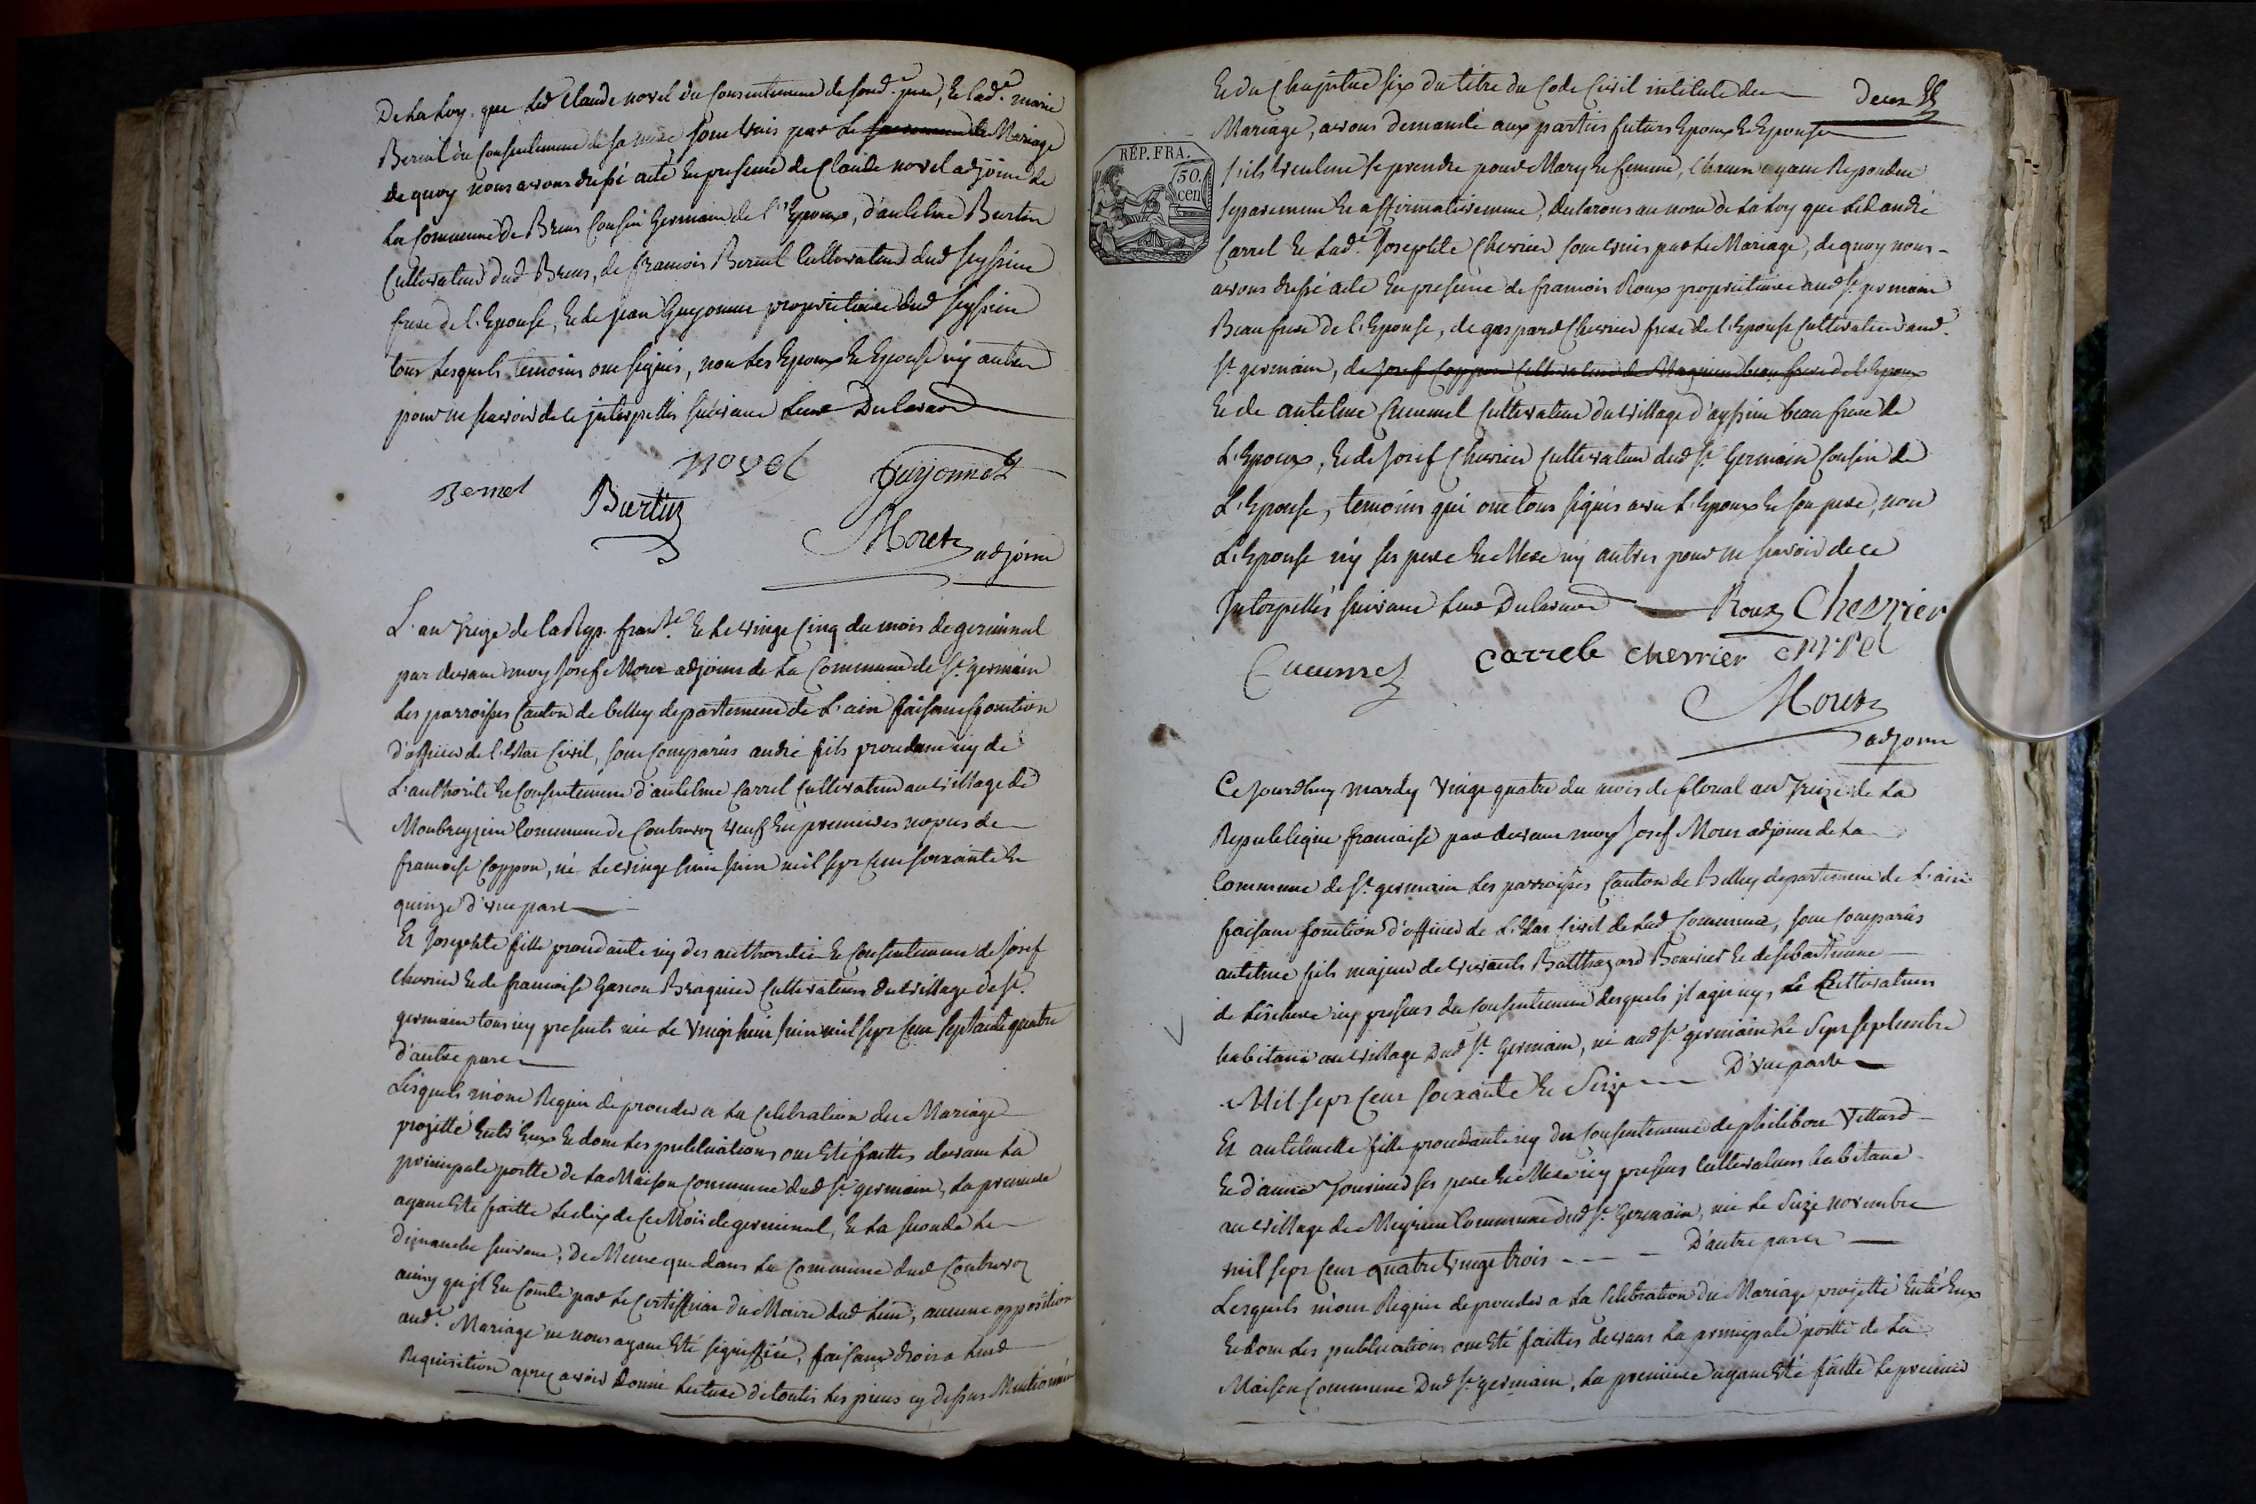 De la Loy que led Claude novel du Consentement de sond. pere, et lad.e marie
Bernel du Consentement de sa mere sont unis par le Mariage
de quoy nous avons dressé acte en presence de Claude novel adjoint de
la Commune de Brens Cousin Germain de l'Epoux, d'antelme Burtin
Cultivateur dud Brens, de francois Bernel Cultivateur dud seyssin
frere de l'Epouse, et de jean Guyonnet proprietaire dud seyssin
tous lesquels temoins ont signés, non les Epoux et Epouse ny autres
pour ne savoir de ce jnterpellés suivant leur Declaraon
Bernel Burtin novel Guyonnet
Moret adjoint
L'an treize de la Rep. franse. et le vingt Cinq du mois de germinal
par devant moy Josef Moret adjoint de la Commune de St. germain
les parroisses Canton de belley departement de L'ain faisant fonction
d'officier de l'Etat Civil, sont Comparûs andré fils procedant icy de
L'authorité et Consentement d'antelme Carrel Cultivateur au village de
Commune de veuf en premieres nopces de
francoise Coppon, né le vingt huit juin mil sept cent soixante et
quinze d'une part
Et Josephte fille procedante icy des authorités et Consentement de Josef
Chevrier et de francoise Gascon Braguier Cultivateurs du village de St.
germain tous icy presents née le vingt huit juin mil sept cent septante quatre
d'autre part
Lesquels m'ont Requis de proceder a la Celebration du Mariage
projetté Entr'Eux et dont les publications ont Eté faittes devant la
principale portte de la Maison Commune dud St. germain, la premiere
ayant Eté faitte le dix de ce Mois de germinal, et la seconde le
dimanche suivant, De Meme que dans la Commune dud
ainsy qu'jl En Conste par le Certifficat du Maire dud lieu, aucune opposition
aud. Mariage ne nous ayant Eté signiffiée, faisant droit a leur
Requisition aprez avoir donné lecture de touttes les pieces cy dessus Mentionnées
Et du Chapitre six du titre du Code Civil intitulé du
Mariage, avons demandé aux parties futurs Epoux et Epouse
s'ils veulent se prendre pour Mary et femme, Chacun ayant Repondu
separement et affirmativement, declarons au nom de la Loy que led andré
Carrel et lad.e Josephte Chevrier sont unis par le Mariage, de quoy nous
avons dressé acte en presence de francois Roux proprietaire aud St. germain
Beau frere de l'Epouse, de gaspard Chevrier frere de l'Epouse Cultivateur aud.
St. germain, de Josef Coppon Cultivateur de Magnieu beau frere de l'Epoux
et de antelme Cultivateur du village d'appsieu beau frere de
L'Epoux, et de Josef Chevrier Cultivateur dud St. Germain Cousin de
L'Epouse, temoins qui ont tous signés avec L'Epoux et son pere, non
L'Epouse ny ses pere et Mere ny autres pour ne savoir de ce
Jnterpellés suivant leur Declaraon Roux Chevrier
Carrele chevrier
Moret
adjoint
RÉP. FRA.
50.
cen
Ce jourdhuy mardy vingt quatre du mois de floreal an treize de la
Republique francaise par devant moy Josef Moret adjoint de la
Commune de St. germain les parroisses Canton de Belley departement de L'ain
faisant fonction d'officier de L'Etat Civil de lad Commune, sont Comparûs
antelme fils majeur de vivants Balthazard Bouvier et de sebastienne
de icy presens du Consentement desquels jl agit icy, et Cultivateurs
habitants au village Dud St. Germain, né aud St. germain le Sept septembre
Mil sept Cent soixante et Seize D'une parte
Et antelmette fille procedante icy du Consentement de philibert Villard
et d'anne ses pere et Mere icy presens Cultivateurs habitans
au village de Meyrieu Commune dud St. Germain, née le Seize novembre
mil sept Cent quatre vingt trois D'autre part
Lesquels m'ont Requis de proceder a la Celebration du Mariage projetté Entr'Eux
et dont les publications ont Eté faittes devant la principale portte de la
Maison Commune Dud St. germain, la premiere ayant Eté faitte le premier